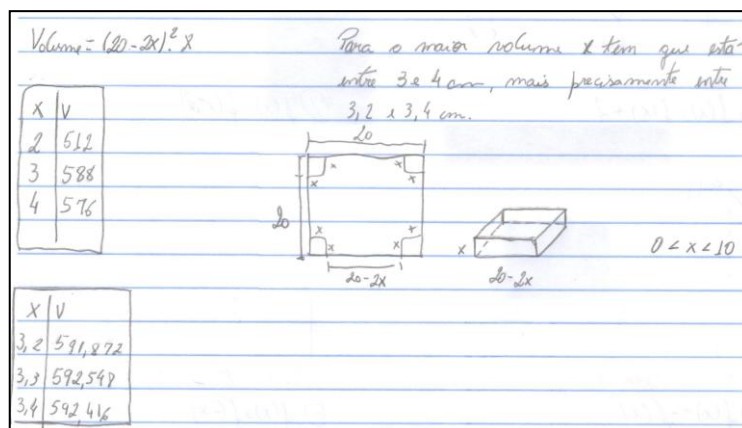 Volume = (20-2x)².x
Para o maior volume x tem que está
entre 3 e 4 cm, mais precisamente entre
3,2 e 3,4 cm.
x | V
2 | 512
3 | 588
4 | 576
20
x x
x x
20
x x
x x
20-2x
x
20-2x
0 < x < 10
x | V
3,2 | 591,872
3,3 | 592,548
3,4 | 592,416